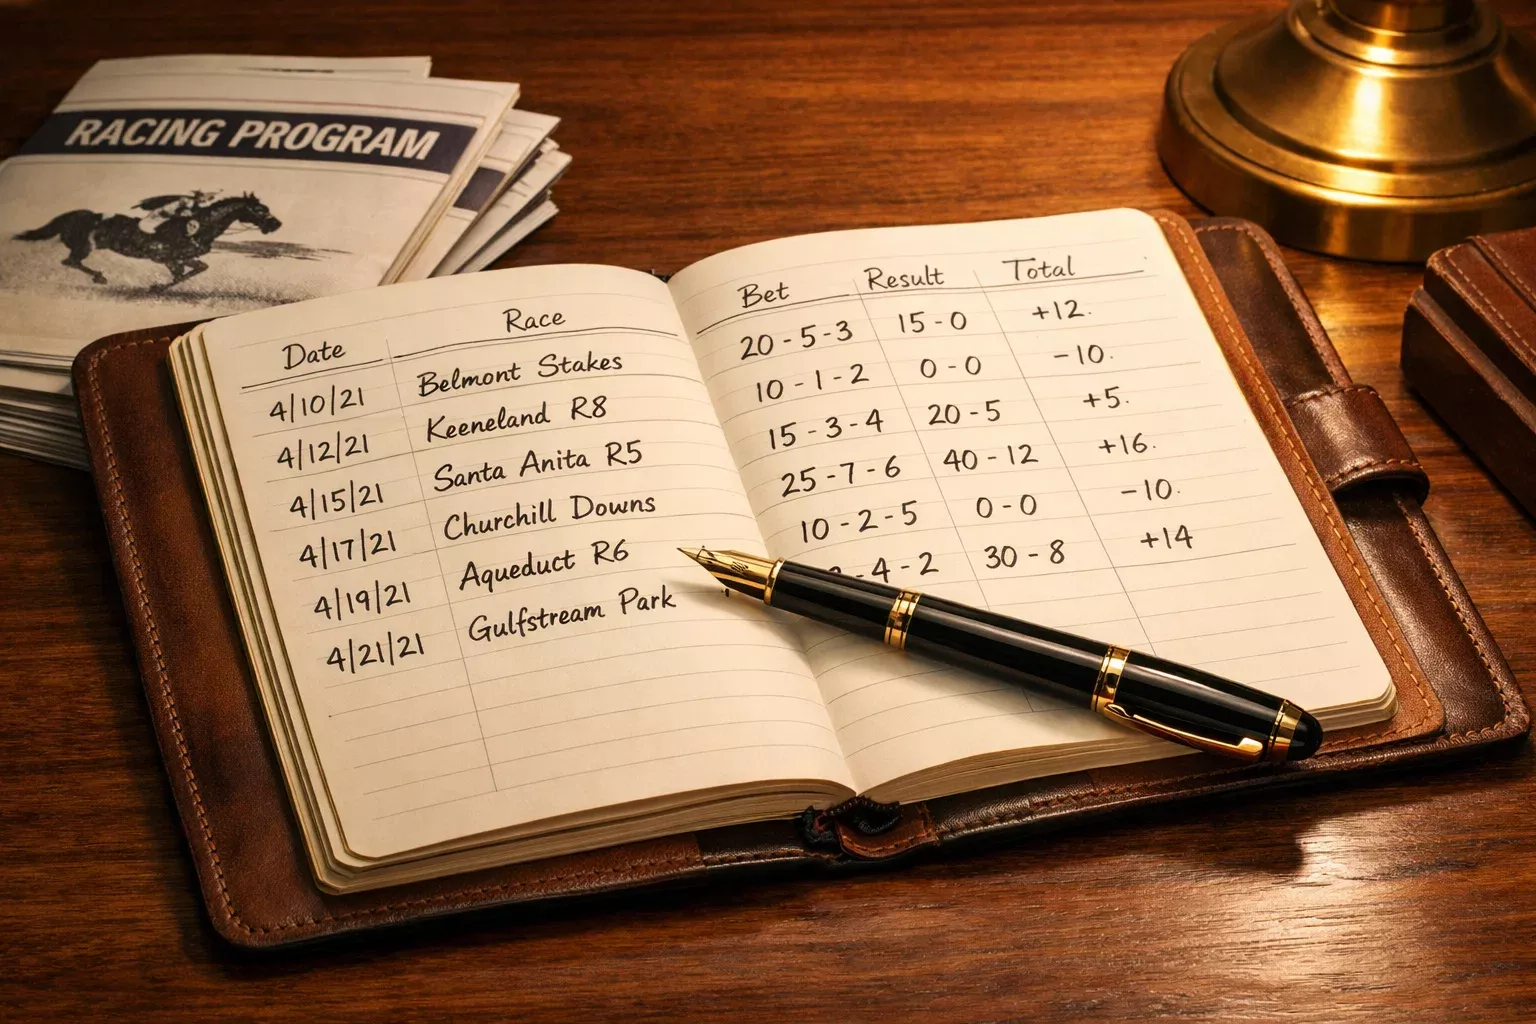 RACING PROGRAM
Date Race Bet Result Total
4/10/21 Belmont Stakes 20 - 5 - 3 15 - 0 +12.
4/12/21 Keeneland R8 10 - 1 - 2 0 - 0 -10.
4/15/21 Santa Anita R5 15 - 3 - 4 20 - 5 +5.
4/17/21 Churchill Downs 25 - 7 - 6 40 - 12 +16.
4/19/21 Aqueduct R6 10 - 2 - 5 0 - 0 -10.
4/21/21 Gulfstream Park - 4 - 2 30 - 8 +14